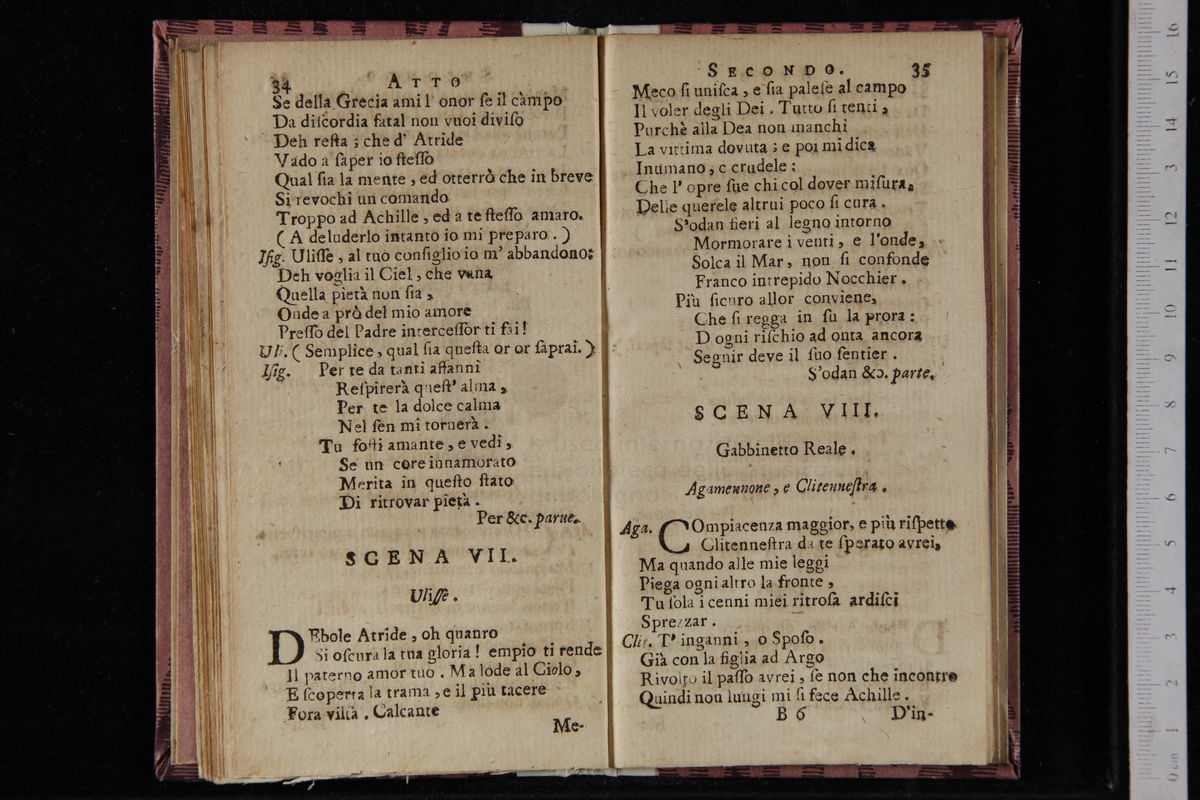 34 ATTO
Se della Grecia ami l' onor se il càmpo
Da discordia fatal non vuoi diviso
Deh resta ; che d' Atride
Vado a saper io stesso
Qual sia la mente , ed otterrò che in breve
Si revochi un comando
Troppo ad Achille , ed a te stesso amaro.
( A deluderlo intanto io mi preparo . )
Isig. Ulisse , al tuo consiglio io m' abbandono;
Deh voglia il Ciel , che vana
Quella pietà non sia ,
Onde a prò del mio amore
Presso del Padre intercessor ti fai !
Uli. ( Semplice , qual sia questa or or saprai. )
Isig. Per te da tanti affanni
Respirerà quest' alma ,
Per te la dolce calma
Nel sen mi tornerà .
Tu fosti amante , e vedi ,
Se un core innamorato
Merita in questo stato
Di ritrovar pietà .
Per &c. parte.
SCENA VII.
Ulisse .
DEbole Atride , oh quanro
Si oscura la tua gloria ! empio ti rende
Il paterno amor tuo . Ma lode al Ciolo ,
E scoperta la trama , e il più tacere
Fora viltà . Calcante
Me-
SECONDO. 35
Meco si unisca , e sia palese al campo
Il voler degli Dei . Tutto si tenti ,
Purchè alla Dea non manchi
La vittima dovuta ; e poi mi dica
Inumano , e crudele ;
Che l' opre sue chi col dover misura,
Delle querele altrui poco si cura .
S'odan fieri al legno intorno
Mormorare i venti , e l'onde,
Solca il Mar , non si confonde
Franco intrepido Nocchier .
Più sicuro allor conviene,
Che si regga in su la prora :
D ogni rischio ad onta ancora
Seguir deve il suo sentier .
S'odan &c. parte.
SCENA VIII.
Gabbinetto Reale .
Agamennone , e Clitennestra .
Aga. COmpiacenza maggior, e più rispetto
Clitennestra da te sperato avrei,
Ma quando alle mie leggi
Piega ogni altro la fronte ,
Tu sola i cenni miei ritrosa ardisci
Sprezzar .
Clit. T' inganni , o Sposo .
Già con la figlia ad Argo
Rivolto il passo avrei , se non che incontro
Quindi non lungi mi si fece Achille .
B 6 D'in-